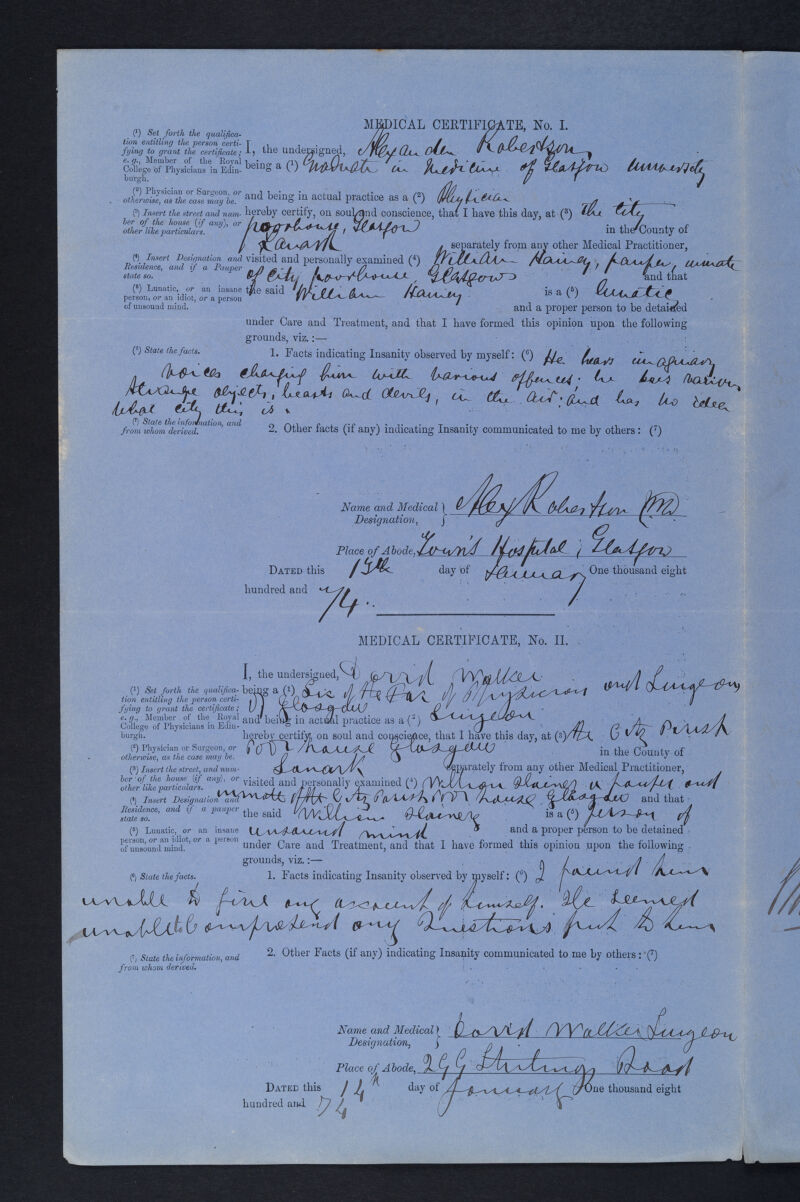 MEDICAL CERTIFICATE, No. I.
(1) Set forth the qualifica-
tion entitling the person certi-
fying to grant the certificate;
e. g., Member of the Royal
College of Physicians in Edin-
burgh.
(2) Physician or Surgeon, or
otherwise, as the case may be.
(3) Insert the street and num-
ber of the house (if any), or
other like particulars.
(4) Insert Designation and
Residence, and if a Pauper
state so.
(5) Lunatic, or an insane
person, or an idiot, or a person
of unsound mind.
(6) State the facts.
(7) State the information, and
from whom derived.
I, the undersigned, Alexander Robertson,
being a (1) Graduate in Medicine of Glasgow University
and being in actual practice as a (2) Physician
hereby certify, on soul and conscience, that I have this day, at (3) the City
poorhouse, Glasgow in the County of
Lanark separately from any other Medical Practitioner,
visited and personally examined (4) William Hainey, pauper, inmate
of City poorhouse Glasgow and that
the said William Hainey is a (5) lunatic
and a proper person to be detained
under Care and Treatment, and that I have formed this opinion upon the following
grounds, viz.:—
1. Facts indicating Insanity observed by myself: (6) He hears imaginary
voices charging him with various offences; he sees various
strange objects, beasts and devils, in the air: and has no idea
what city this is.
2. Other facts (if any) indicating Insanity communicated to me by others: (7)
Name and Medical Designation, Alex Robertson M.D.
Place of Abode, Town's Hospital, Glasgow
DATED this 15th day of January One thousand eight
hundred and 74.
MEDICAL CERTIFICATE, No. II.
(1) Set forth the qualifica-
tion entitling the person certi-
fying to grant the certificate;
e. g., Member of the Royal
College of Physicians in Edin-
burgh.
(2) Physician or Surgeon, or
otherwise, as the case may be.
(3) Insert the street, and num-
ber of the house (if any), or
other like particulars.
(4) Insert Designation and
Residence, and if a pauper
state so.
(5) Lunatic, or an insane
person, or an idiot, or a person
of unsound mind.
(6) State the facts.
(7) State the information, and
from whom derived.
I, the undersigned, David Walker
being a (1) Lic of the Fac of Physicians and Surgeons
of Glasgow
and being in actual practice as a (2) Surgeon
hereby certify, on soul and conscience, that I have this day, at (3) the City Parish
Poor house Glasgow in the County of
Lanark separately from any other Medical Practitioner,
visited and personally examined (4) William Hainey a pauper and
inmate of the City Parish Poor house Glasgow and that
the said William Hainey is a (5) person of
unsound mind and a proper person to be detained
under Care and Treatment, and that I have formed this opinion upon the following
grounds, viz.:—
1. Facts indicating Insanity observed by myself: (6) I found him
unable to give any account of himself. He seemed
unable to comprehend any Questions put to him
2. Other Facts (if any) indicating Insanity communicated to me by others: (7)
Name and Medical Designation, David Walker Surgeon
Place of Abode, Stirling Road
DATED this 14th day of January One thousand eight
hundred and 74